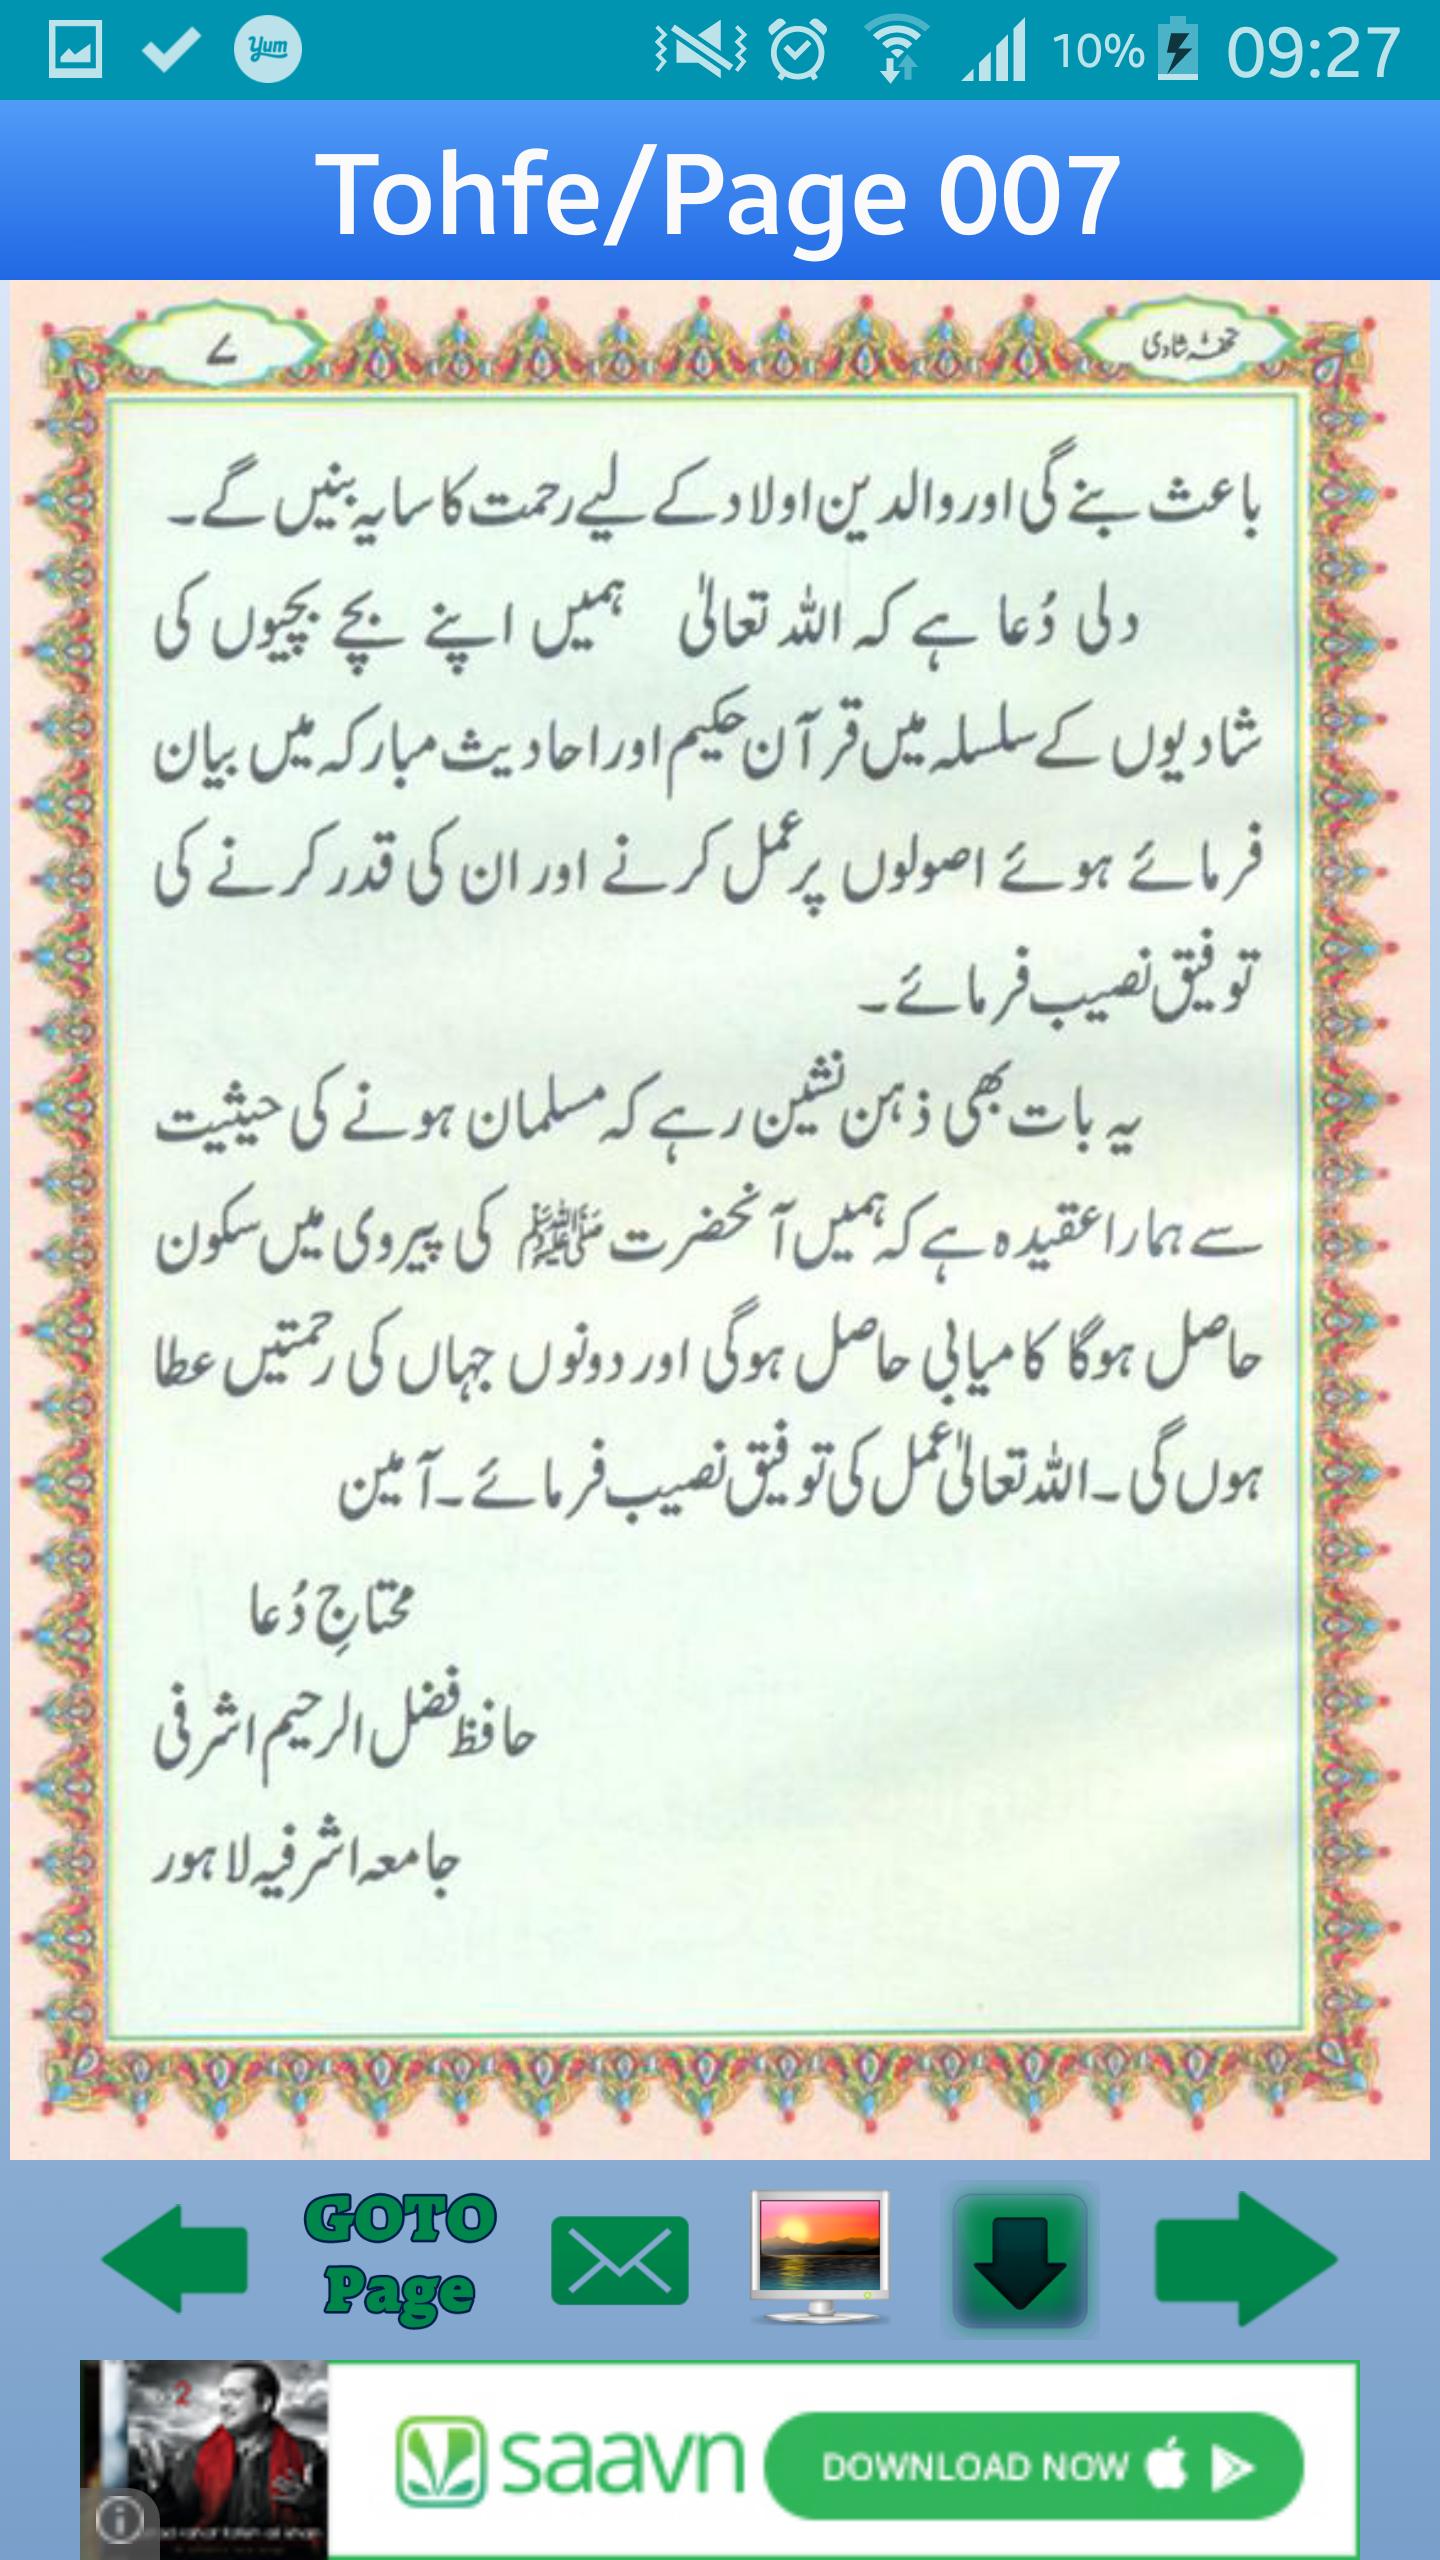 Yum
10%
09:27
Tohfe/Page 007
تحفۂ شادی
۷
باعث بنے گی اور والدین اولاد کے لیے رحمت کا سایہ بنیں گے۔
دلی دُعا ہے کہ اللہ تعالیٰ ہمیں اپنے بچے بچیوں کی
شادیوں کے سلسلہ میں قرآن حکیم اور احادیث مبارکہ میں بیان
فرمائے ہوئے اصولوں پر عمل کرنے اور ان کی قدر کرنے کی
توفیق نصیب فرمائے۔
یہ بات بھی ذہن نشین رہے کہ مسلمان ہونے کی حیثیت
سے ہمارا عقیدہ ہے کہ ہمیں آنحضرت ﷺ کی پیروی میں سکون
حاصل ہوگا کامیابی حاصل ہوگی اور دونوں جہاں کی رحمتیں عطا
ہوں گی۔ اللہ تعالیٰ عمل کی توفیق نصیب فرمائے۔ آمین
محتاجِ دُعا
حافظ فضل الرحیم اشرفی
جامعہ اشرفیہ لاہور
GOTO
Page
2
saavn
DOWNLOAD NOW